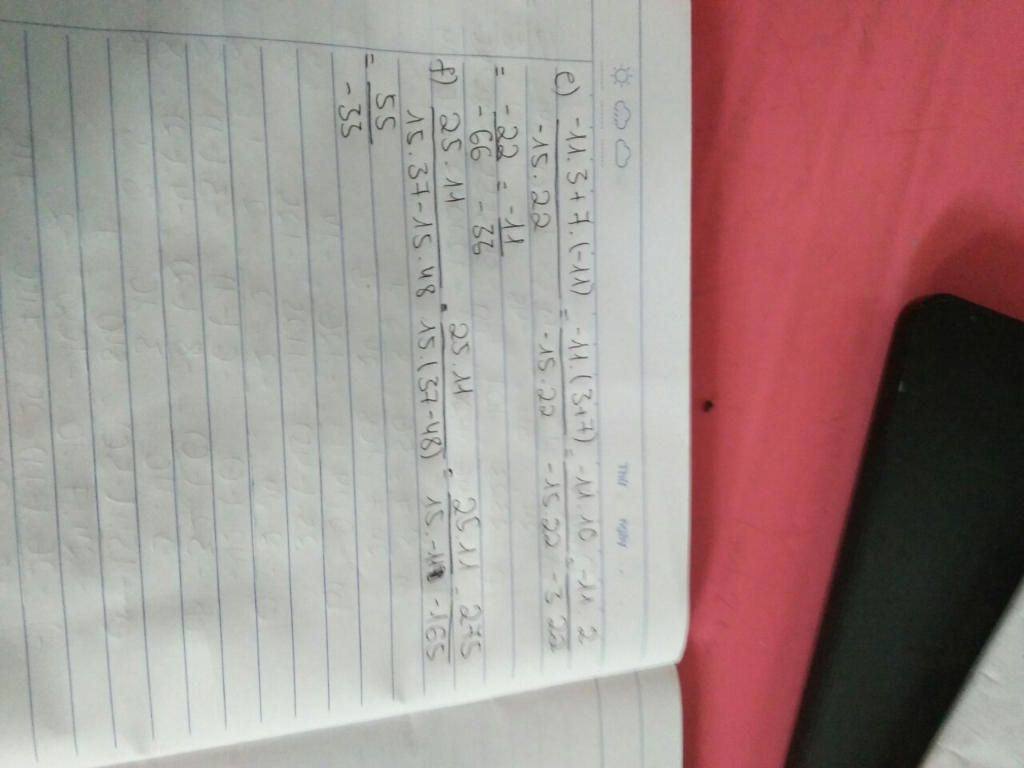 THỨ NGÀY
e) -11.3+7.(-11) / -15.22 = -11.(3+7) / -15.22 = -11.10 / -15.22 = -11.2 / -3.22
= -22 / -66 = -11 / -33
f) 25.11 / 15.37-15.48 = 25.11 / 15.(37-48) = 25.11 / 15.-11 = 275 / -165
= 55 / -33